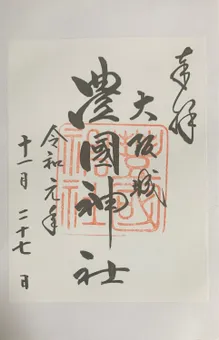 奉拝
大阪城
豊國神社
令和元年
十一月二十七日